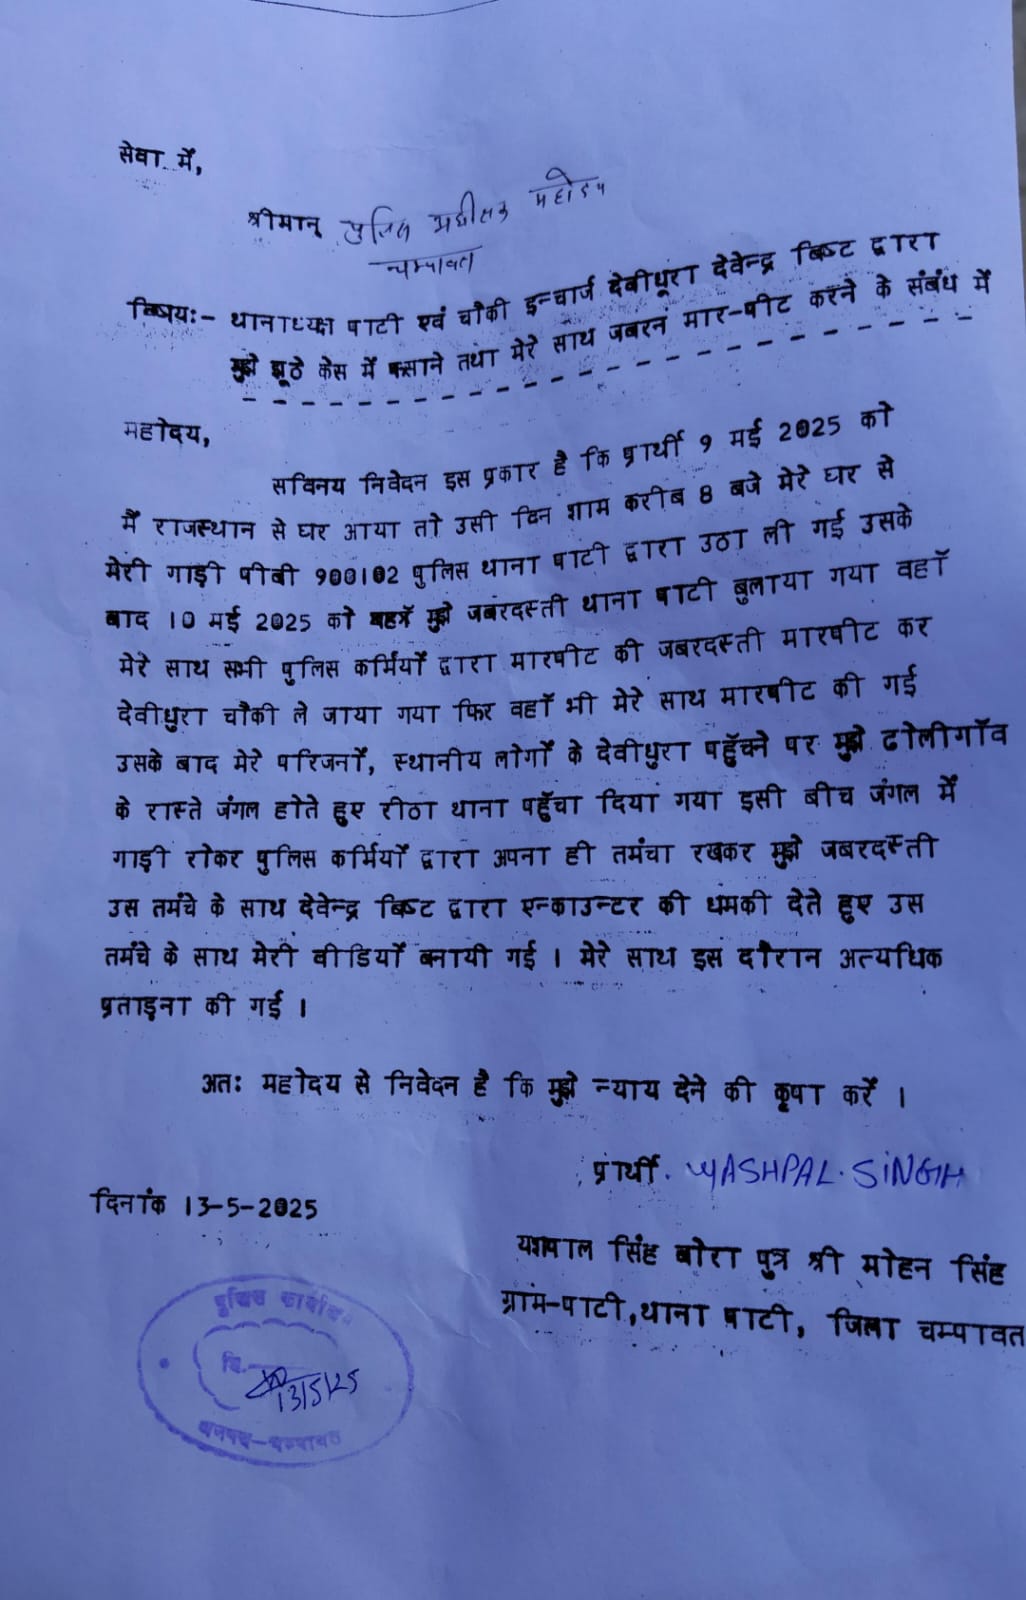 सेवा में,
श्रीमान् पुलिस अधीक्षक महोदय
चम्पावत
विषय:- थानाध्यक्ष पाटी एवं चौकी इन्चार्ज देवीधूरा देवेन्द्र बिष्ट द्वारा
मुझे झूठे केस में फसाने तथा मेरे साथ जबरन मार-पीट करने के संबंध में
महोदय,
सविनय निवेदन इस प्रकार है कि प्रार्थी 9 मई 2025 को
मैं राजस्थान से घर आया तो उसी दिन शाम करीब 8 बजे मेरे घर से
मेरी गाड़ी पीबी 900102 पुलिस थाना पाटी द्वारा उठा ली गई उसके
बाद 10 मई 2025 को मुझे जबरदस्ती थाना पाटी बुलाया गया वहाँ
मेरे साथ सभी पुलिस कर्मियों द्वारा मारपीट की जबरदस्ती मारपीट कर
देवीधुरा चौकी ले जाया गया फिर वहाँ भी मेरे साथ मारपीट की गई
उसके बाद मेरे परिजनों, स्थानीय लोगों के देवीधुरा पहुँचने पर मुझे ढोलीगाँव
के रास्ते जंगल होते हुए रीठा थाना पहुँचा दिया गया इसी बीच जंगल में
गाड़ी रोकर पुलिस कर्मियों द्वारा अपना ही तमंचा रखकर मुझे जबरदस्ती
उस तमंचे के साथ देवेन्द्र बिष्ट द्वारा एन्काउन्टर की धमकी देते हुए उस
तमंचे के साथ मेरी वीडियों बनायी गई । मेरे साथ इस दौरान अत्यधिक
प्रताड़ना की गई ।
अत: महोदय से निवेदन है कि मुझे न्याय देने की कृपा करें ।
प्रार्थी. YASHPAL. SINGH
दिनांक 13-5-2025
यशपाल सिंह बोरा पुत्र श्री मोहन सिंह
ग्राम-पाटी,थाना पाटी, जिला चम्पावत
पुलिस कार्यालय
दि.
13/5/25
जनपद-चम्पावत